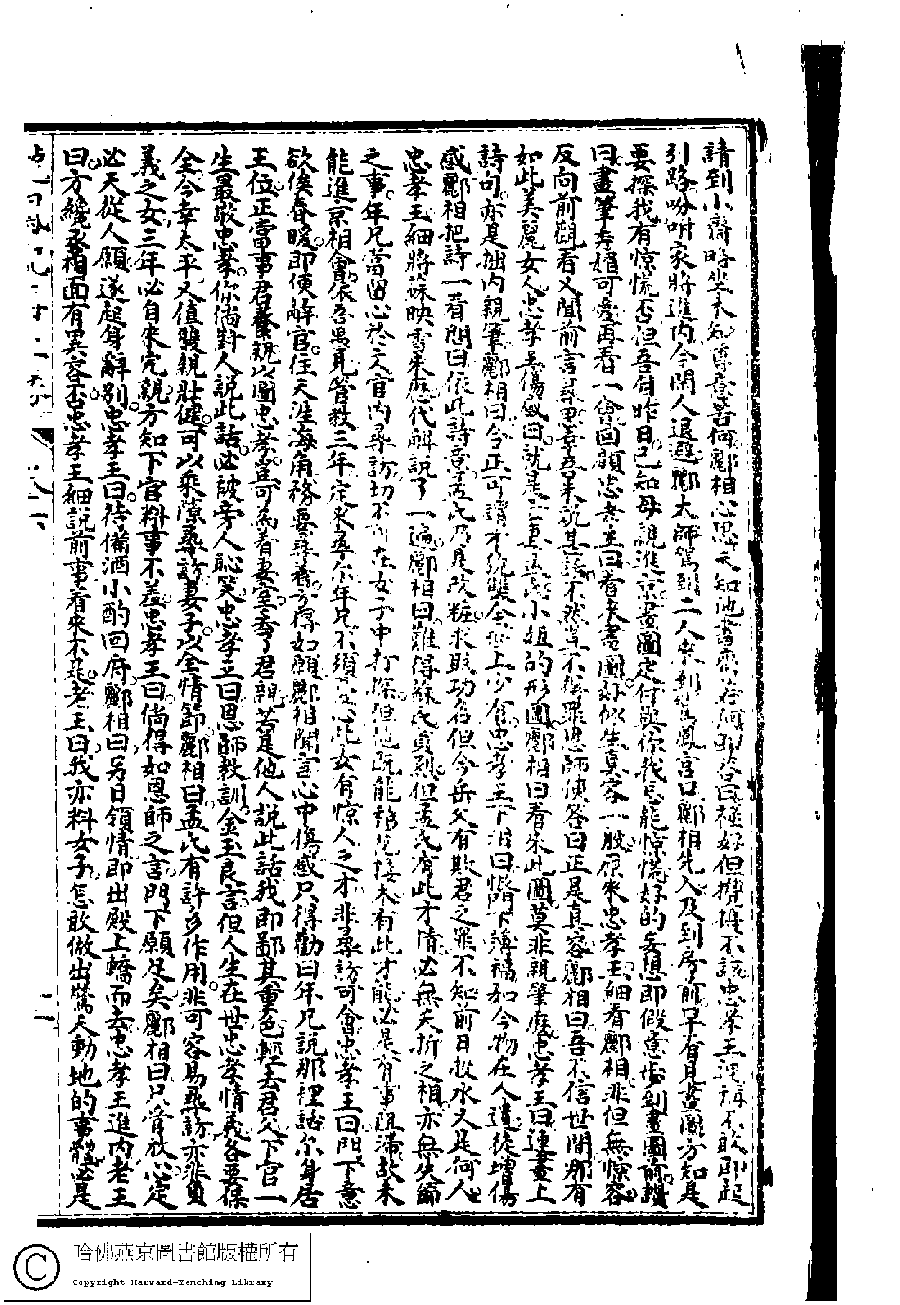 請到小齋略坐未知尊意若何酈相心思不知他書齋若何即答曰極好但攪擾不該忠孝王連稱不敢即起
引路吩咐家將進內令閒人退避酈大師駕到二人來到鳳宮口酈相先入及到房前早有見畫圖方知是
要探我有惊慌否但吾自昨日已知母親進京畫圖定付與你我豈能惊慌好的妄想即假意步到畫圖前讚
曰畫筆奇楷可愛再看一會回顧忠孝王曰看來畫圖好似生真容一般原來忠孝王細看酈相非但無惊容
反向前觀看又聞前言果說其話不然豈不得罪恩師便答曰正是真容酈相曰吾不信世間那有
如此美麗女人忠孝王傷感曰就是孟小姐的形圖酈相曰看來此圖莫非親筆麼忠孝王曰連畫上
詩句亦是拙內親筆酈相曰今正可謂才貌雙全世上少有忠孝王下淚曰門下薄福如今物在人遺徒增傷
感酈相把詩一看問曰依此詩意孟氏乃是改粧求取功名但今岳父有欺君之罪不知前日投水又是何人
忠孝王細將蘇映雪來歷代解說了一遍酈相曰難得蘇氏貞烈但孟氏有此才情必無夭折之相亦無失節
之事年兄當留心於文官內尋訪切不可在女子中打探但他既能有此才能必是有事阻滯故未
能進京相會依吾愚見管教三年定來尋尔年兄不須此女有惊人之才非尋訪可會忠孝王曰門下意
欲俟春暖即便辭官往天涯海角務要尋着方得如願酈相聞言心中傷感只得勸曰年兄說那裡話尔身居
王位正當事君養親以圖忠孝豈可為着妻室丟了君親若是他人說此話我即鄙其重色輕丟君父下官一
生最敬忠孝你倘對人說此話必被旁人恥笑忠孝王曰恩師教訓金玉良言但人生在世忠孝情義各要保
全今幸太平又值雙親壯健可以乘隙尋訪妻子以全情節酈相曰孟氏有許多作用非可容易尋訪亦非負
義之女三年必自來完親方知下官料事不差忠孝王曰倘得如恩師之言門下願足矣酈相曰只管放心定
必天從人願遂起身辭別忠孝王曰待備酒小酌回府酈相曰另日領情即出殿上轎而去忠孝王進內老王
曰方纔酈相面有異容否忠孝王細說前事看來不是老王曰我亦料女子怎敢做出驚天動地的事體必是
二
哈佛燕京圖書館版權所有
Copyright Harvard-Yenching Library